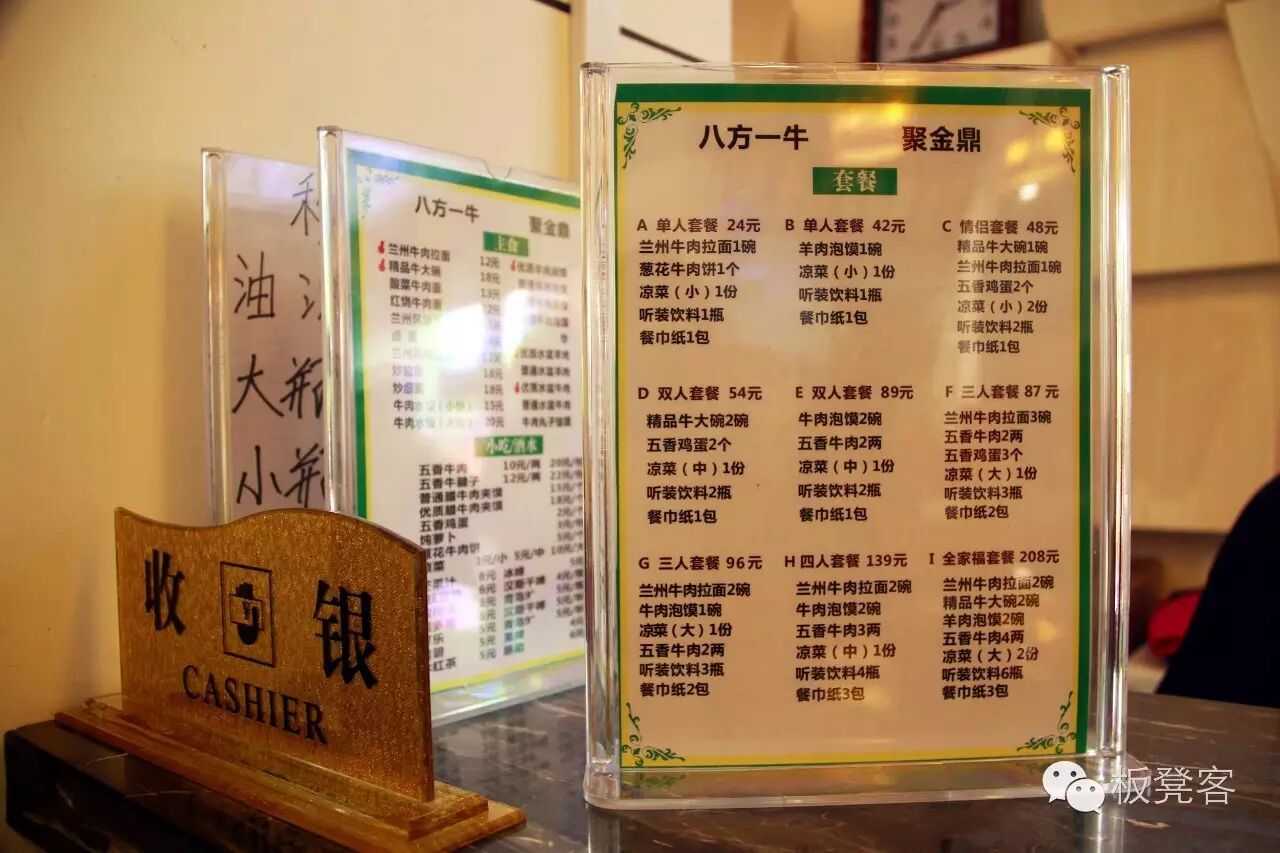 八方一牛 聚金鼎
套餐
A 单人套餐 24元
兰州牛肉拉面1碗
葱花牛肉饼1个
凉菜（小）1份
听装饮料1瓶
餐巾纸1包
B 单人套餐 42元
羊肉泡馍1碗
凉菜（小）1份
听装饮料1瓶
餐巾纸1包
C 情侣套餐 48元
精品牛大碗1碗
兰州牛肉拉面1碗
五香鸡蛋2个
凉菜（小）2份
听装饮料2瓶
餐巾纸1包
D 双人套餐 54元
精品牛大碗2碗
五香鸡蛋2个
凉菜（中）1份
听装饮料2瓶
餐巾纸1包
E 双人套餐 89元
牛肉泡馍2碗
五香牛肉2两
凉菜（中）1份
听装饮料2瓶
餐巾纸1包
F 三人套餐 87元
兰州牛肉拉面3碗
五香牛肉2两
五香鸡蛋3个
凉菜（大）1份
听装饮料3瓶
餐巾纸2包
G 三人套餐 96元
兰州牛肉拉面2碗
牛肉泡馍1碗
凉菜（大）1份
五香牛肉2两
听装饮料3瓶
餐巾纸2包
H 四人套餐 139元
兰州牛肉拉面2碗
牛肉泡馍2碗
五香牛肉3两
凉菜（中）1份
听装饮料4瓶
餐巾纸3包
I 全家福套餐 208元
兰州牛肉拉面2碗
精品牛大碗2碗
羊肉泡馍2碗
五香牛肉4两
凉菜（大）2份
听装饮料6瓶
餐巾纸3包
八方一牛 聚金鼎
主食
兰州牛肉拉面 12元
精品牛大碗 18元
酸菜牛肉面 13元
红烧牛肉面
炒细面 18元
小吃/酒水
五香牛肉 10元/两
五香牛腱子 12元/两
普通腊牛肉夹馍
优质腊牛肉夹馍
五香鸡蛋
炖萝卜
油
大瓶
小瓶
收银
CASHIER
板凳客